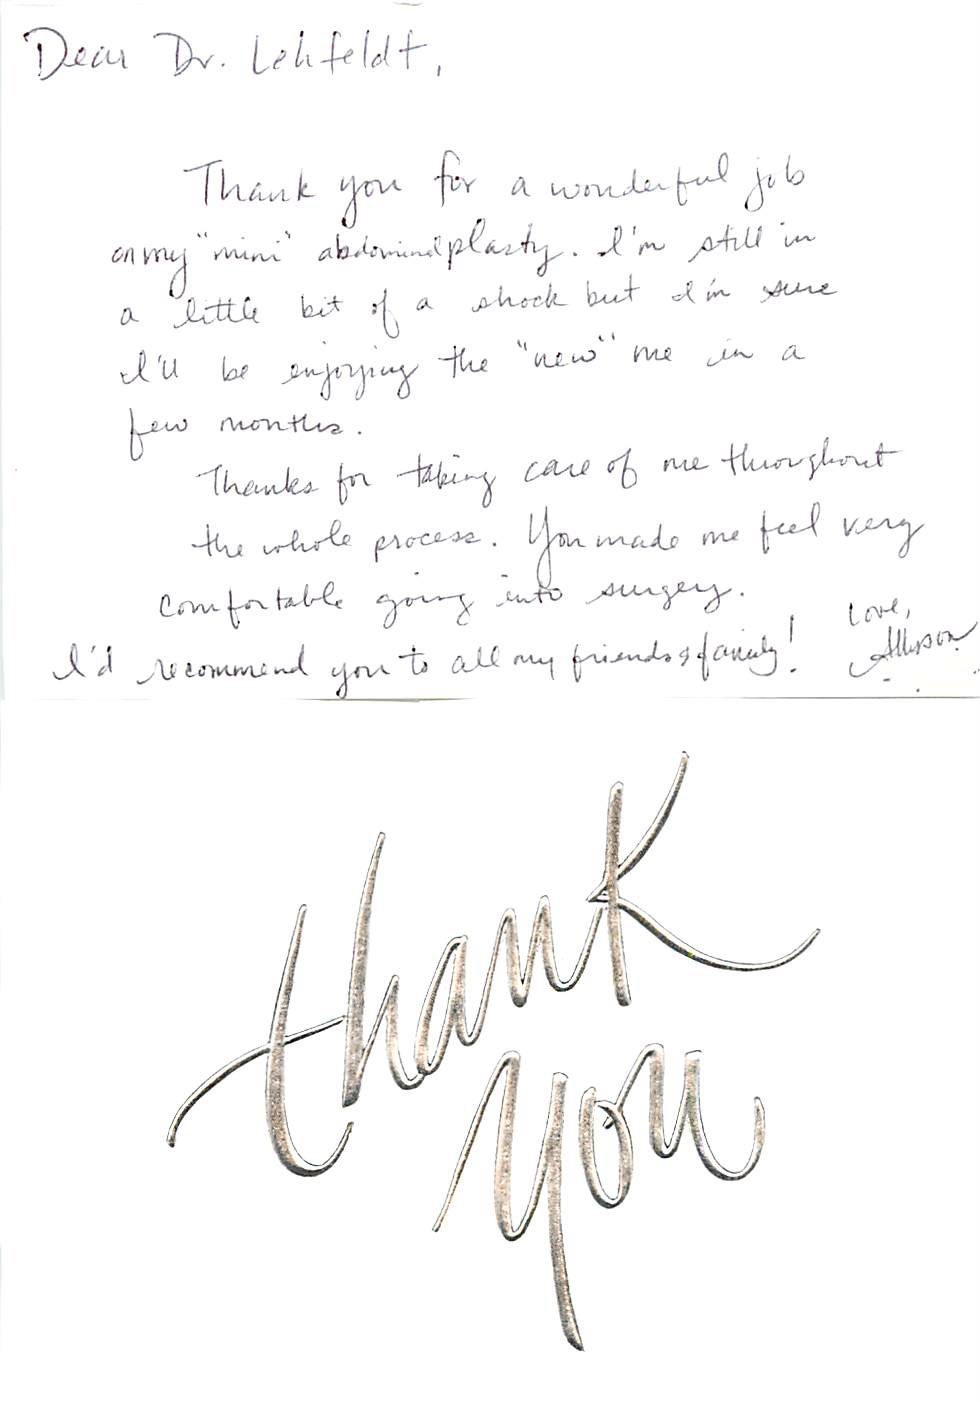 Dear Dr. Lehfeldt,
Thank you for a wonderful job
on my "mini" abdominalplasty. I'm still in
a little bit of a shock but I'm sure
I'll be enjoying the "new" me in a
few months.
Thanks for taking care of me throughout
the whole process. You made me feel very
comfortable going into surgery.
I'd recommend you to all my friends & family!
Love,
Allyson
thank
you